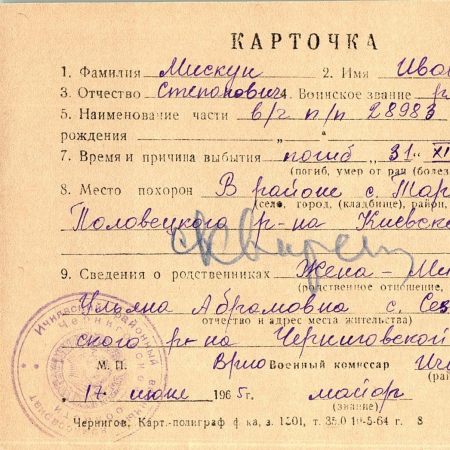 КАРТОЧКА
1. Фамилия Мискун 2. Имя Ива
3. Отчество Степанович 4. Воинское звание р
5. Наименование части в/ч п/п 28983
рождения „ “
7. Время и причина выбытия погиб „31 XI
(погиб, умер от ран (болез
8. Место похорон В районе с. Тар
(село, город, (кладбище), район,
Половецкого р-на Киевско
9. Сведения о родственниках Жена – Ми
(родственное отношение,
Ульяна Абрамовна с. Сез
отчество и адрес места жительства)
ского р-на Черниговской
М. П. Врио Военный комиссар Ичн
(рай
17 июне 1965г. майор
(звание)
Чернигов, Карт.-полиграф ф-ка, з. 1801, т. 35.0 19-5-64 г. 8